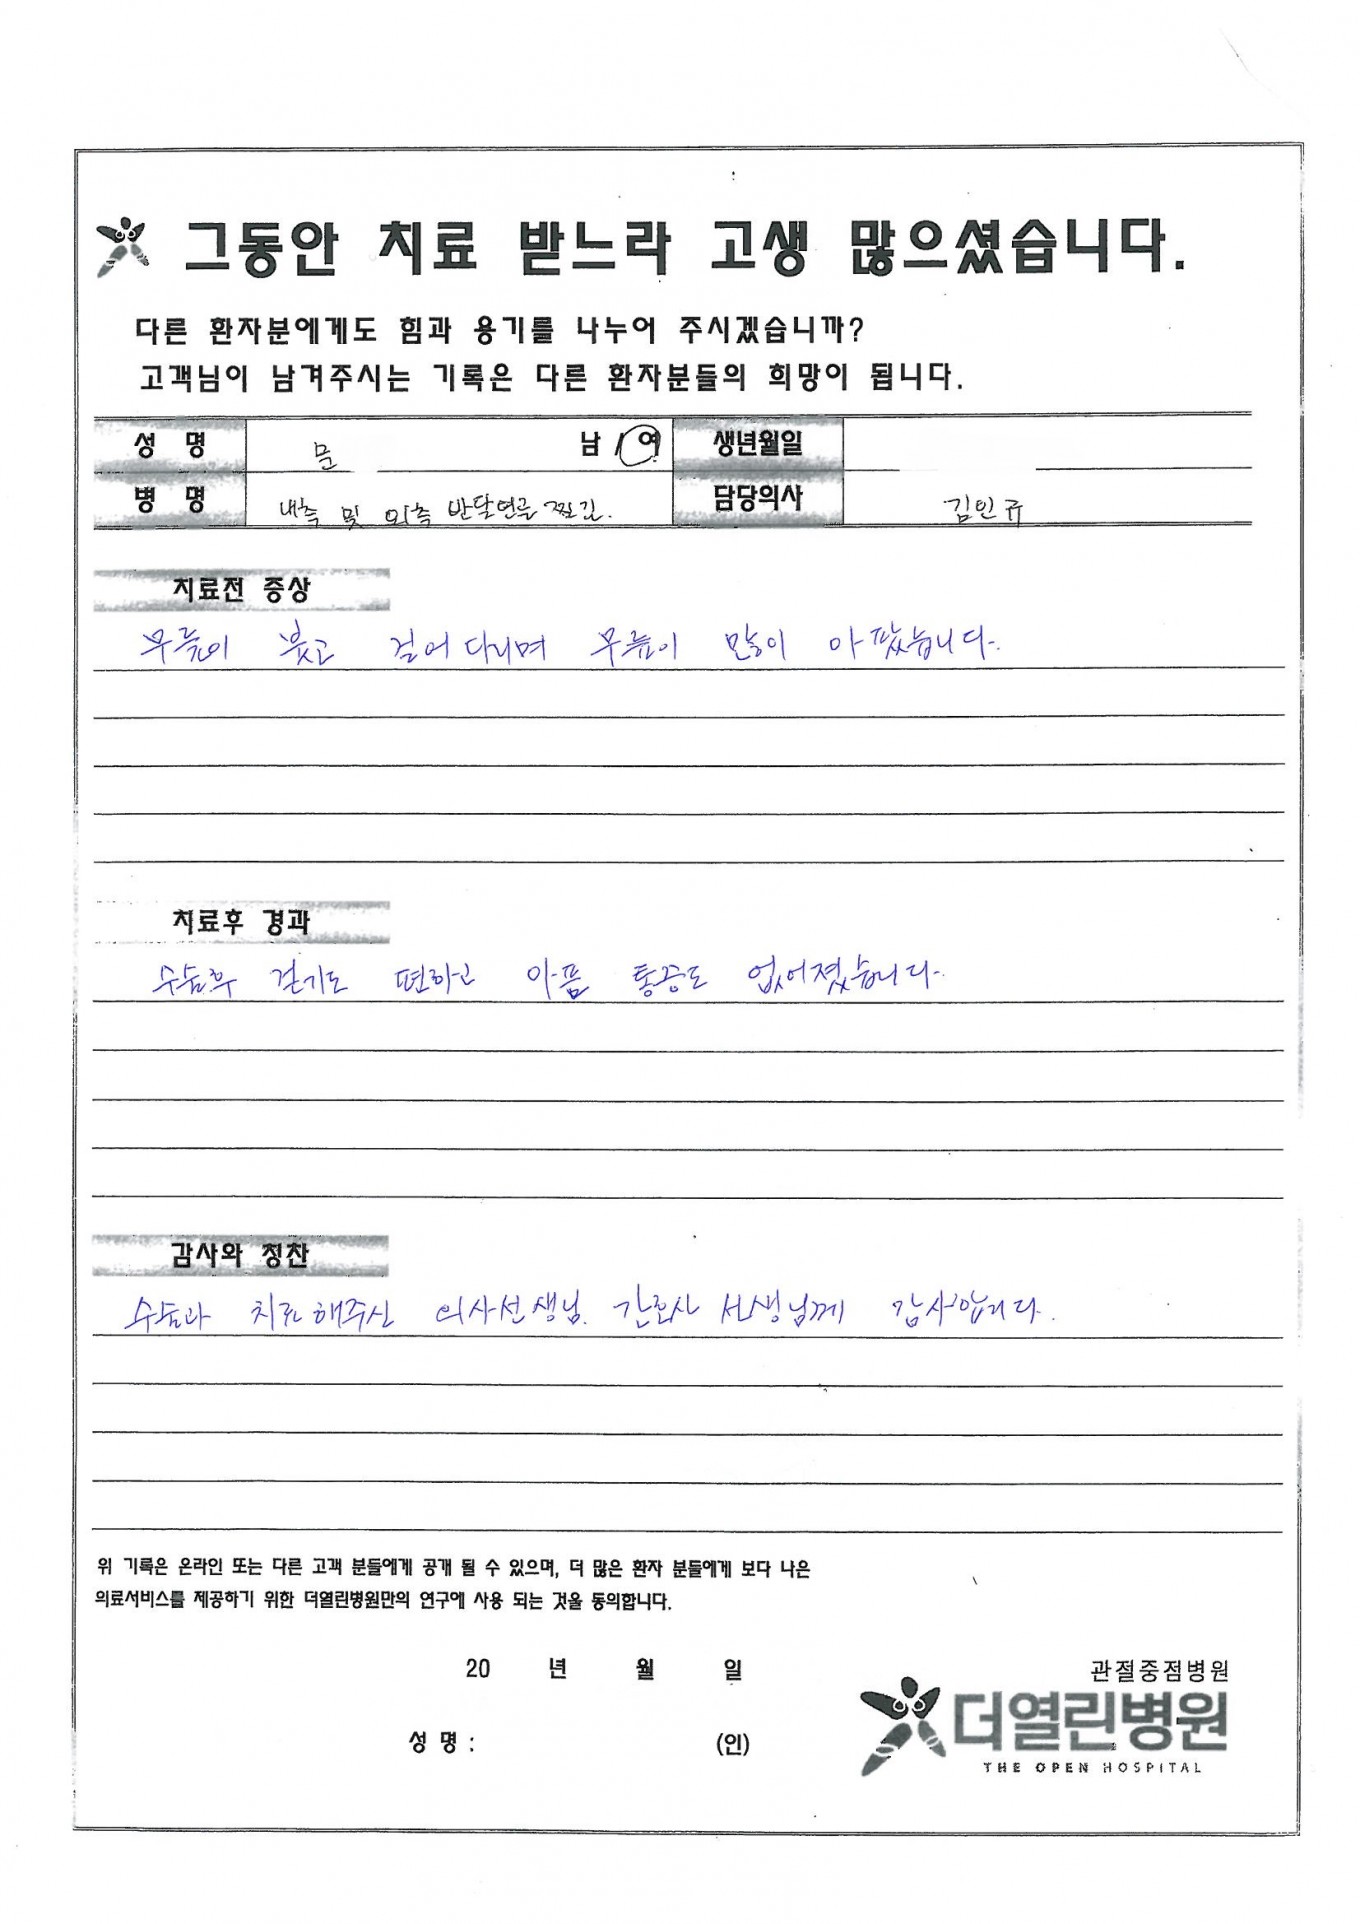 그동안 치료 받느라 고생 많으셨습니다.
다른 환자분에게도 힘과 용기를 나누어 주시겠습니까?
고객님이 남겨주시는 기록은 다른 환자분들의 희망이 됩니다.
성 명 문 남 / 여 생년월일
병 명 내측 및 외측 반달연골 찢김. 담당의사 김인규
치료전 증상
무릎이 붓고 걸어 다리며 무릎이 많이 아팠습니다.
치료후 경과
수술후 걷기도 편하고 아픔 통증도 없어졌습니다.
감사와 칭찬
수술과 치료해주신 의사선생님. 간호사 선생님께 감사합니다.
위 기록은 온라인 또는 다른 고객 분들에게 공개 될 수 있으며, 더 많은 환자 분들에게 보다 나은
의료서비스를 제공하기 위한 더열린병원만의 연구에 사용 되는 것을 동의합니다.
20 년 월 일
성 명 : (인)
관절중점병원
더열린병원
THE OPEN HOSPITAL